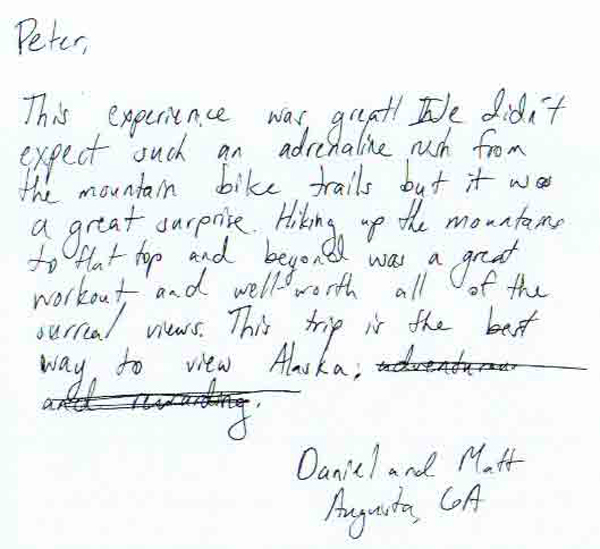 Peter,
This experience was great! We didn't
expect such an adrenaline rush from
the mountain bike trails but it was
a great surprise. Hiking up the mountains
to flat top and beyond was a great
workout and well-worth all of the
surreal views. This trip is the best
way to view Alaska; adventurous
and rewarding.
Daniel and Matt
Augusta, GA